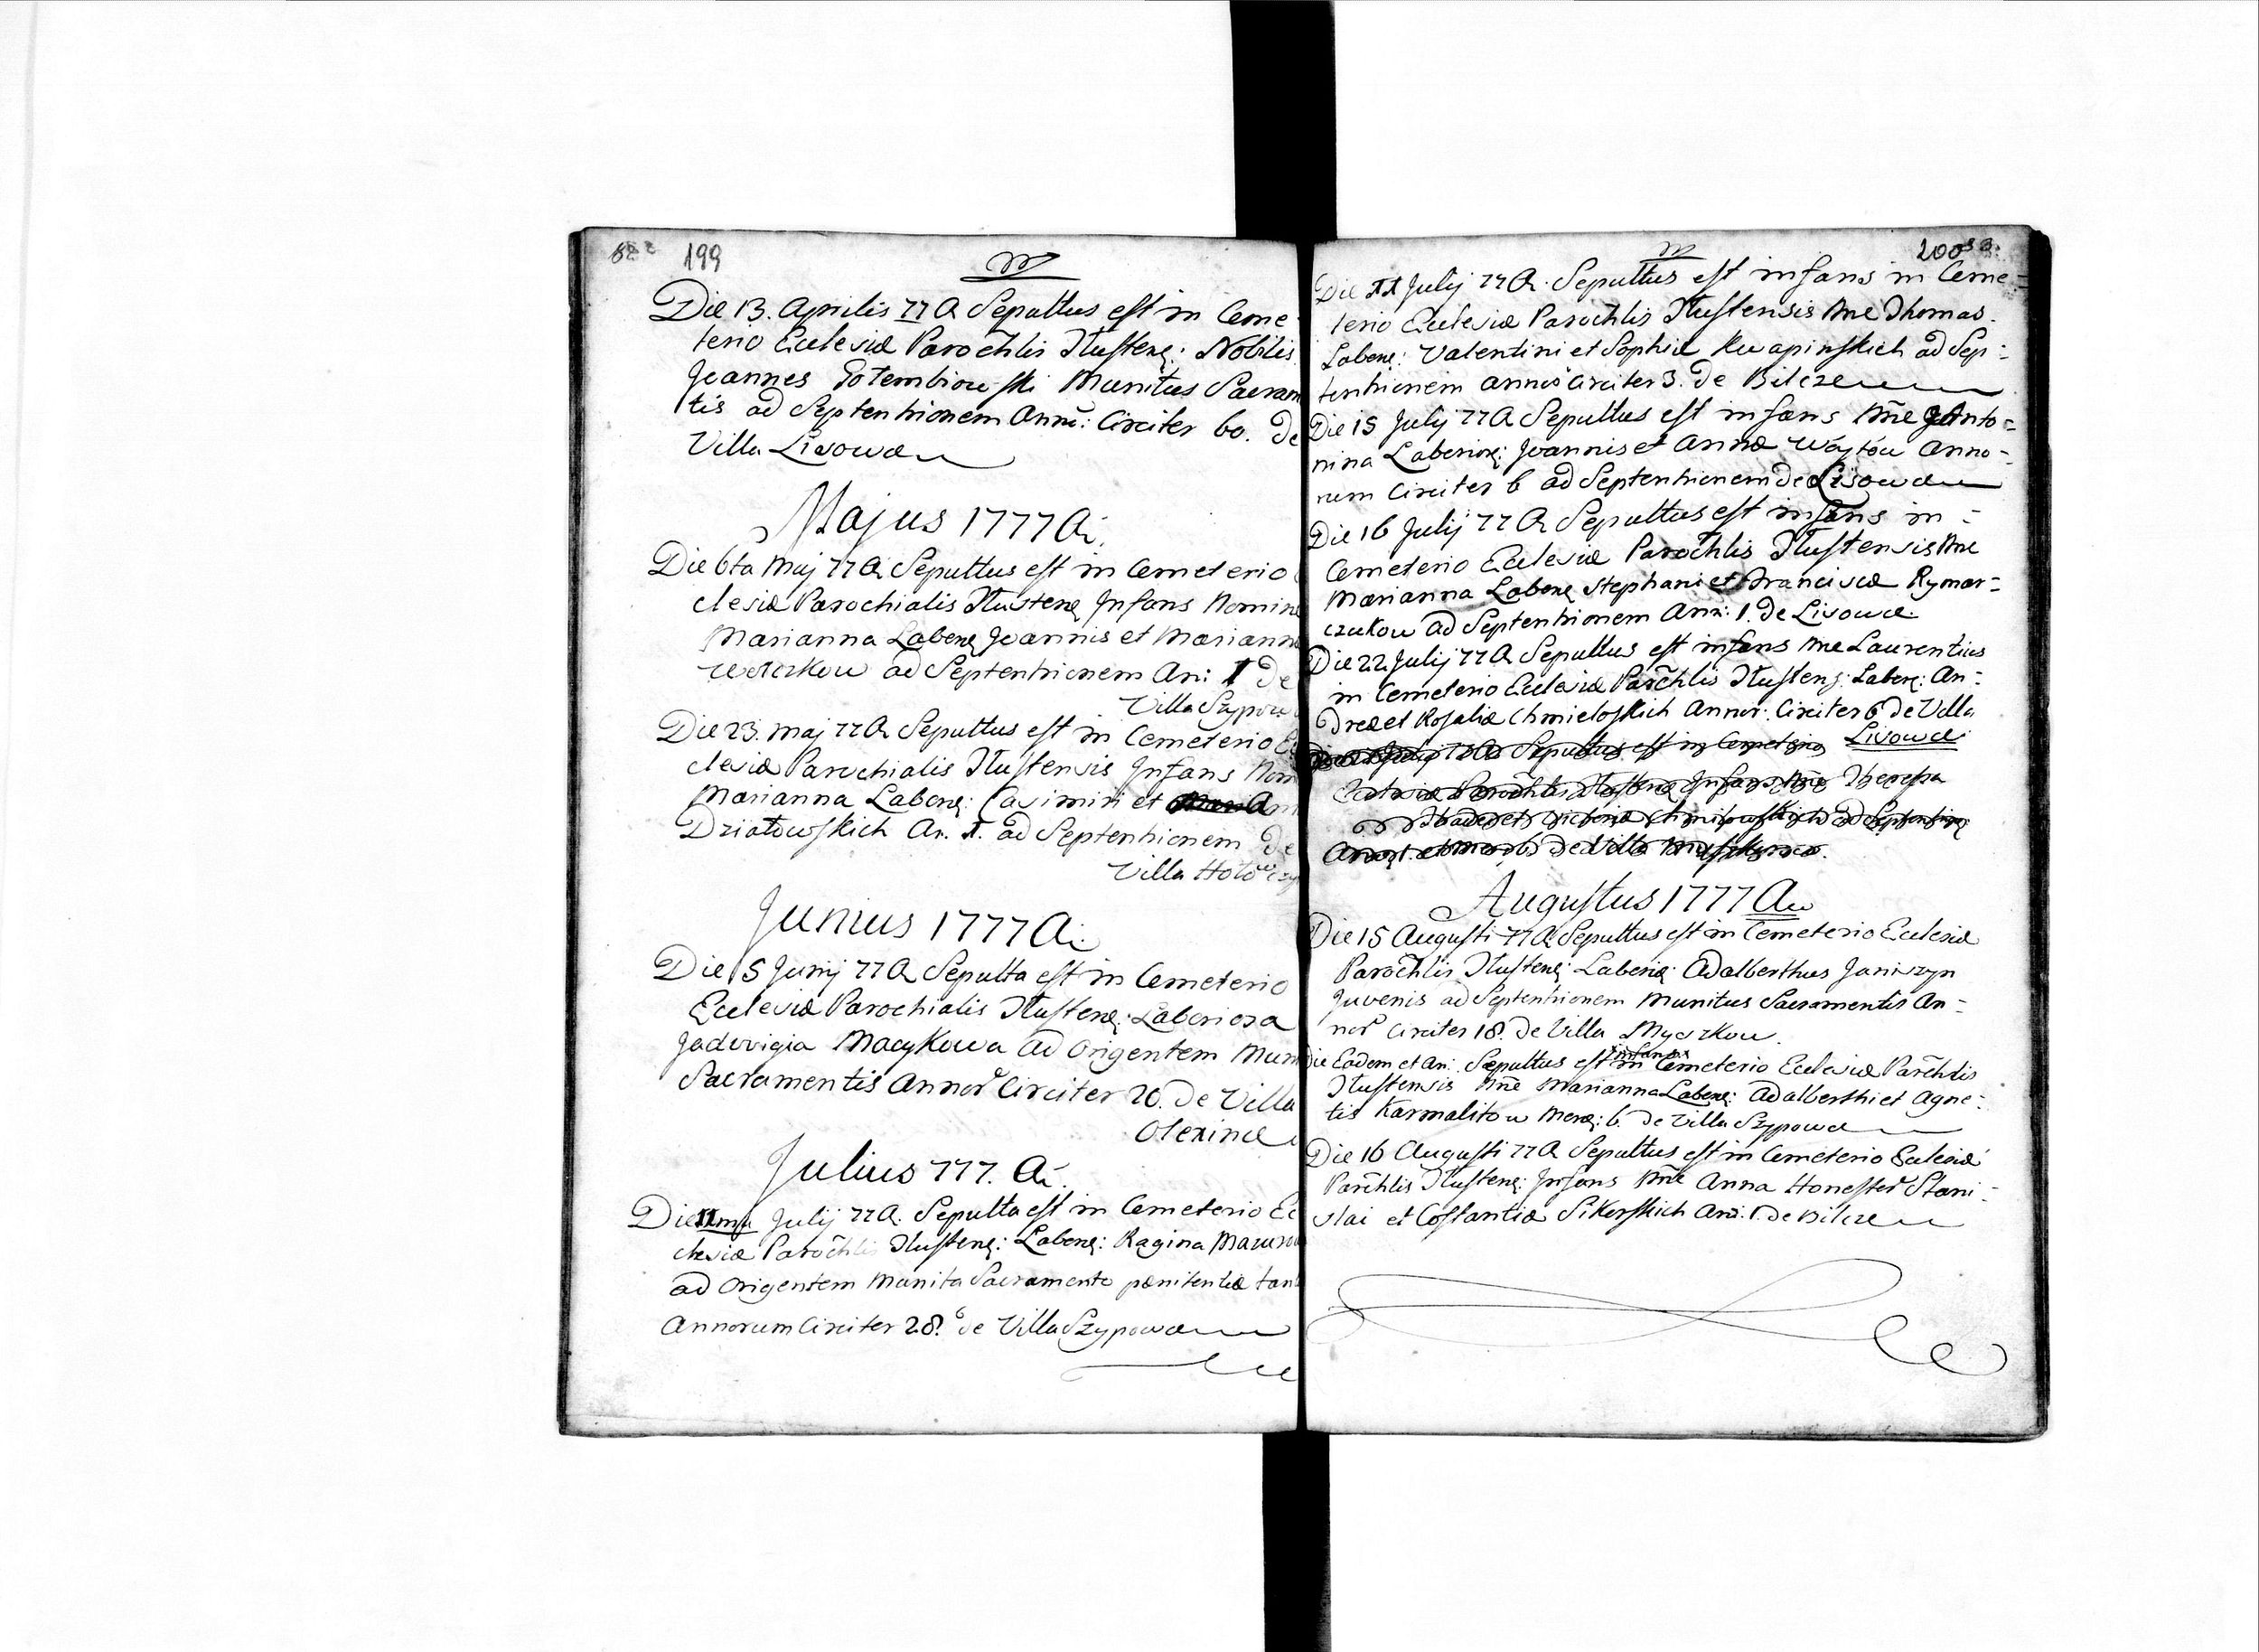 199
Die 13. Aprilis 77 A Sepultus est in Ceme
terio Ecclesiæ Parochlis Tłustenę: Nobilis
Joannes Gołembiowski Munitus Sacram
tis ad Septentrionem Annū: Circiter 60. De
Villa Lisowæ
Majus 1777 A:
Die 6ta Maj 77 A Sepultus est in Cemeterio
clesiæ Parochialis Tłustenę Infans Nomine
Marianna Labenę Joannis et Mariann
ad Septentrionem An: 1 De
Villa Szypow
Die 23. Maj 77 A Sepultus est in Cemeterio Ec
clesiæ Parochialis Tłustensis Infans Nom
Marianna Labenę: Casimiri et
Działowskich An. 1. ad Septentrionem De
Villa Hołowczy
Junius 1777 A:
Die 5 Junij 77 A Sepulta est in Cemeterio
Ecclesiæ Parochialis Tłustenę: Laboriosa
Jadwigia Macykowa ad Origentem Mun
Sacramentis Annor Circiter 20. De Villa
Olexince
Julius 777. A:
Die 11ma Julij 77 A. Sepulta est in Cemeterio Ec
clesiæ Parochlis Tłustenę: Labenę: Ragina Mazuro
ad Origentem Munita Sacramento pænitentiæ tan
Annorum Circiter 28. de Villa Szypowæ
200
Die 11 Julij 77 A. Sepultus est infans in Ceme=
terio Ecclesiæ Parochlis Tłustensis Nne Thomas.
Labenę: Valentini et Sophiæ Kwapinskich ad Sep:
tentrionem annor Circiter 3. de Bilcze
Die 15 Julij 77 A Sepultus est infans Nne Anto=
nina Laboriorę: Joannis et Annæ Woytow Anno-
rum Circiter 6 ad Septentrionem de Lisowæ
Die 16 Julij 77 A Sepultus est infans in =
Cemeterio Ecclesiæ Parochlis Tłustensis Nne
Marianna Labenę Stephani et Franciscæ Rymar=
czukow ad Septentrionem Ann: 1. de Lisowæ
Die 22 Julij 77 A Sepultus est infans Nne Laurentius
in Cemeterio Ecclesiæ Parchlis Tłustenę: Labenę: An=
dreæ et Rosaliæ Chmieloskich Annor: Circiter 6 de Villa
Lisowæ
Julij 77 A Sepultus est in Cemeterio
Ecclesiæ Parochlis Infans Nne Theressa
ad Septentrionę
de Villa
Augustus 1777 A
Die 15 Augusti 77 A Sepultus est in Cemeterio Ecclesiæ
Parochlis Tłustenę: Laborię: Adalberthus Janiszyn
Juvenis ad Septentrionem Munitus Sacramentis An=
nor Circiter 18. de Villa Myszkow.
Die Eadem et An: Sepultus est infans in Cemeterio Ecclesiæ Parchlis
Tłustensis Nne Marianna Labenę: Adalberthi et Agne=
tis Karmalitow Menę: 6. de Villa Szypowæ
Die 16 Augusti 77 A Sepultus est in Cemeterio Ecclesiæ
Parchlis Tłustenę: Infans Nne Anna Honestor Stani=
slai et Costantiæ Sikorskich Ann: 1. de Bilcze